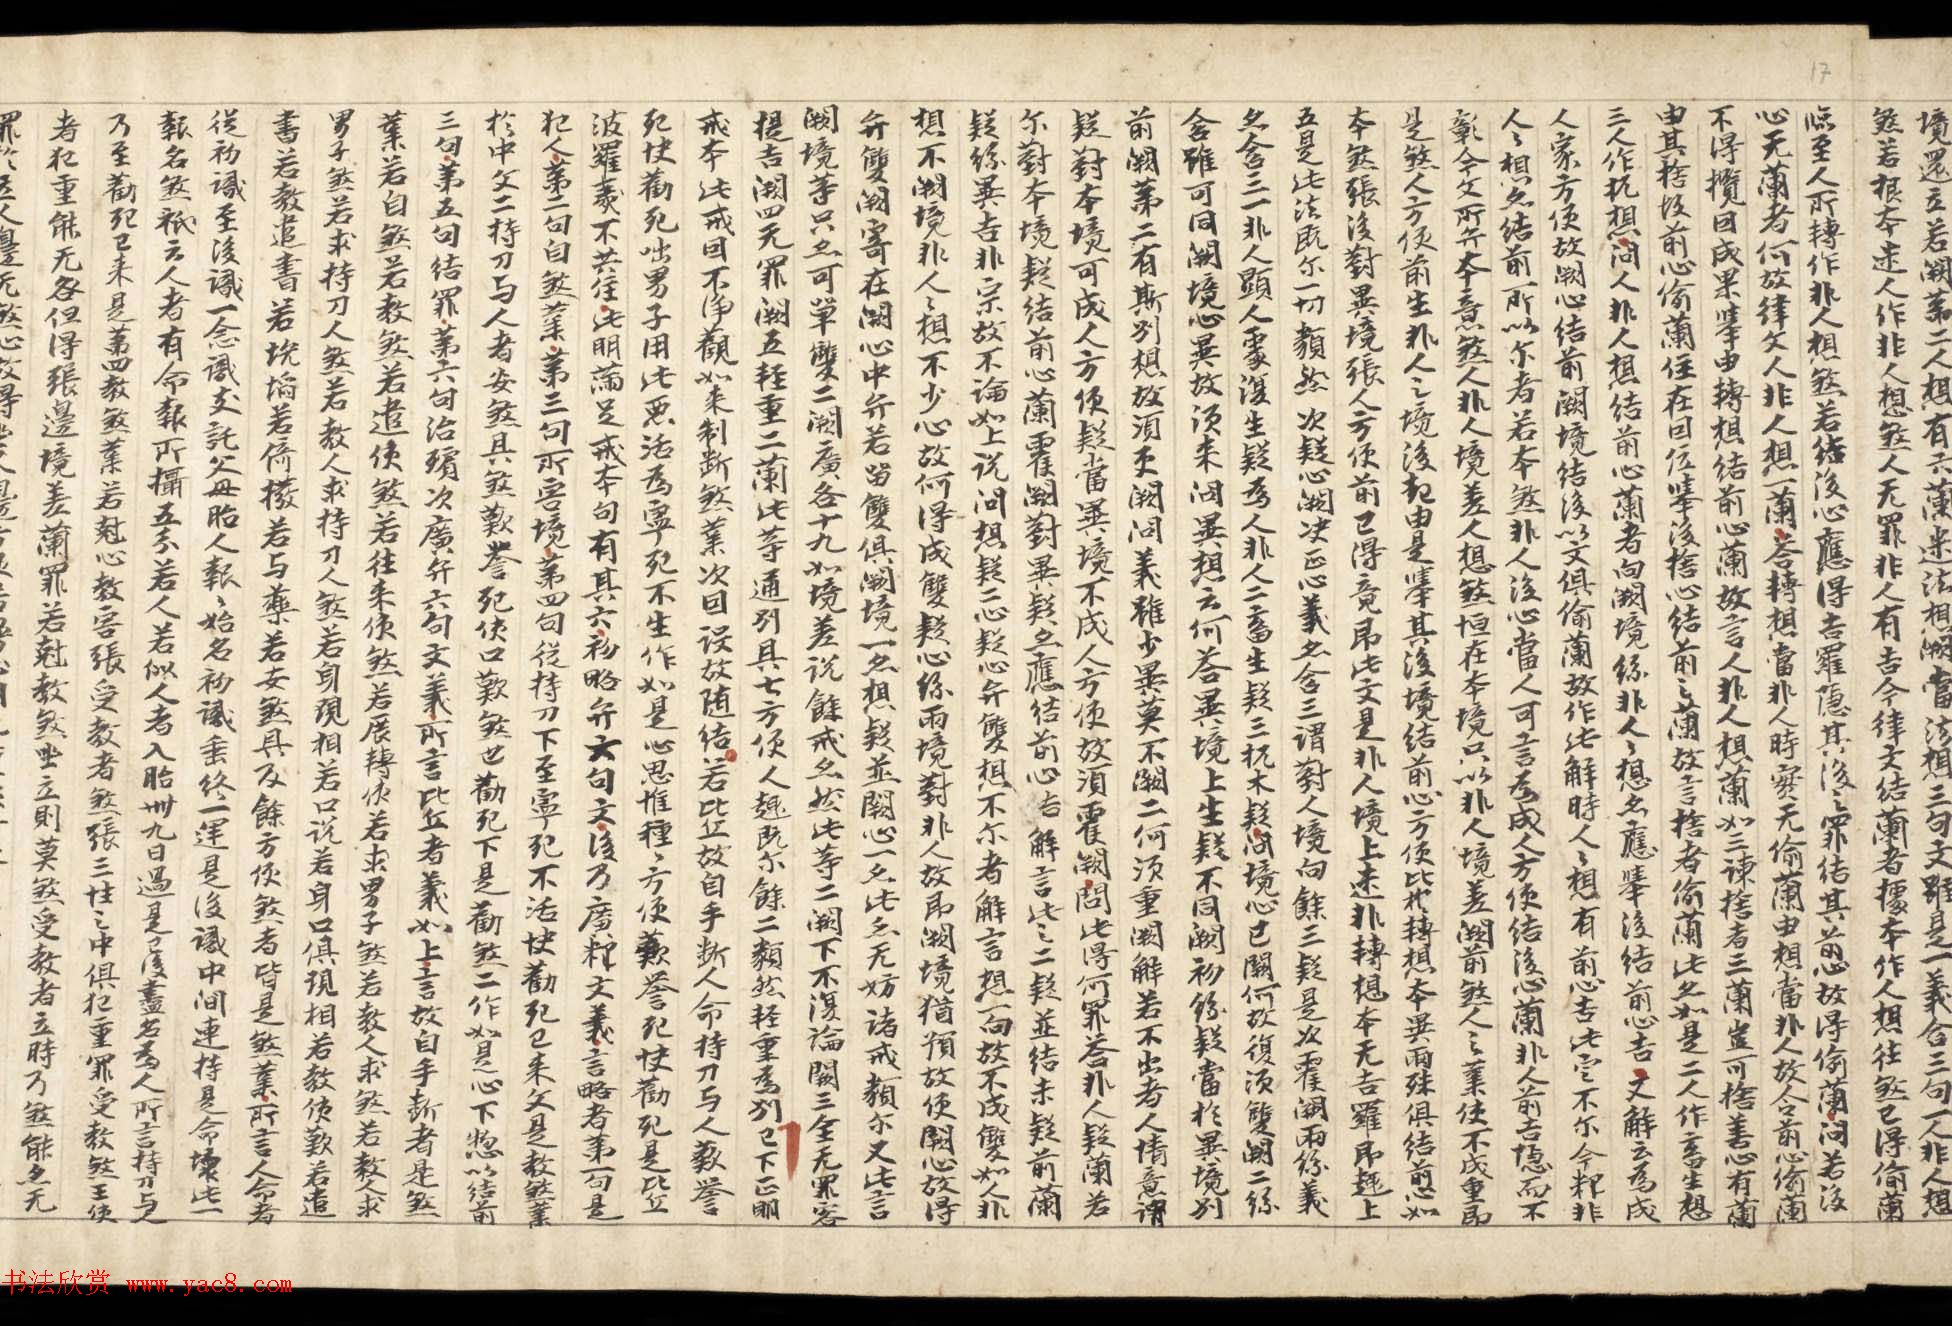 境還立若闕第二人想有六蘭迷法相闕當法想三句文雖是一義合三句一人非人想
煞若根本迷人作非人想煞人无罪非人有吉今律文結蘭者據本作人想往煞已得偷蘭
臨至人所轉作非人想煞若結後心應得吉羅隱其後心罪結其前心故得偷蘭問若後
心无蘭者何故律文人非人想一蘭答轉想當非人時實无偷蘭由想當非人故合前心偷蘭
不得攬因成果業由轉想結前心蘭故言人非人想蘭如三諫捨者三蘭豈可捨善心有蘭
由其捨故前心偷蘭住在因位業後捨心結前之蘭故言捨者偷蘭此亦如是二人作畜生想
三人作杌想問人非人想結前心蘭者向闕境絲非人々想亦應業後結前心吉又解云為成
人家方便故闕心結前闕境結後以文俱偷蘭故作此解時人々想有前心吉此定不尓今釋非
人々想亦結前所以尓者若本煞非人後心當人可言為成人方便結後心蘭非人前吉隱而不
彰今文所弁本意煞人非人境差人想煞恒在本境只以非人境差闕前煞人之業使不成重即
是煞人方便前生非人之境後起由是業其後境結前心方便此於轉想本異兩殊俱結前心如
本煞張後對異境張人方便前已得竟即此文是非人境上迷非轉想本无吉羅即趣上
五是此法既尓一切類然次疑心闕決正心義亦含三謂對人境向餘三疑是次霍闕兩絲義
亦含三一非人顯人家復生疑為人非人二畜生疑三杌木疑問境心已闕何故復須雙闕二絲
含雖可同闕境心異故須来問異想云何答異境上生疑不同闕初絲疑當於異境別
前闕第二有斯別想故須更闕問義雖少異莫不闕二何須重闕解若不出者人情意謂
疑對本境可成人方便疑當異境不成人方便故須霍闕問此得何罪答非人疑蘭若
尓對本境疑結前心蘭霍闕對異疑亦應結前心吉解言此之二疑並結未疑前蘭
疑絲異吉非宗故不論如上說問想疑二心疑心弁雙想不尓者解言想一向故不成雙如人非
想不闕境非人々想不少心故何得成雙疑心絲兩境對非人故即闕境猶預故使闕心故得
弁雙闕寄在闕心中弁若留雙俱闕境一亦想疑並闕心一亦此亦无妨諸戒類尓又此言
闕境等只亦可單雙二闕廣各十九如境差說餘戒亦然此等二闕下不復論闕三全无罪客
提吉闕四无罪闕五輕重二蘭此等通列具七方便人趣既尓餘二類然輕重為別已下正明
戒本此戒因不淨觀如来制断煞業次因设故随結若比丘故自手断人命持刀与人歎譽
死快勸死咄男子用此惡活為寧死不生作如是心思惟種々方便歎譽死快勸死是比丘
波羅夷不共住此明滿足戒本句有其六初略弁六句文後乃廣釋文義言略者第一句是
犯人第二句自煞業第三句所害境第四句從持刀下至寧死不活快勸死已来文是教煞業
於中文二持刀与人者安煞具煞歎譽死使口歎煞也勸死下是勸煞二作如是心下惣以結前
三句第五句結罪第六句治殯次廣弁六句文義所言比丘者義如上言故自手断者是煞
業若自煞若教煞若遣使煞若往来使煞若展轉使若求男子煞若教人求煞若教人求
男子煞若求持刀人煞若教人求持刀人煞若身現相若口說若身口俱現相若教使歎若遣
書若教遣書若坑埳若倚撥若与藥若安煞具及餘方便煞者皆是煞業所言人命者
從初識至後識一念識支託父母胎人報々始名初識垂終一運是後識中间連持是命壞此一
報名煞祇云人者有命報所攝五分若人若似人者入胎卌九日過是已後盡名為人所言持刀与人
乃至勸死已来是第四教煞業若尅心教害張受教者煞張三性之中俱犯重罪受教煞王使
者犯重能无咎但得張邊境差蘭罪若尅教煞坐立則莫煞受教者立時乃煞能亦无
书法欣赏 www.yac8.com
17